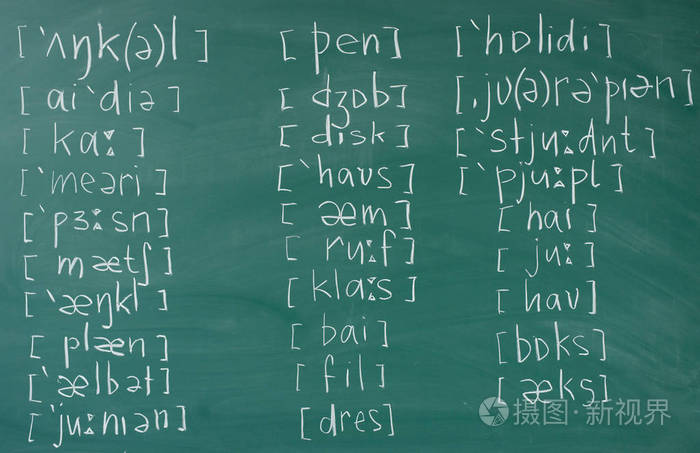 [ˋʌŋk(ə)l]
[aiˋdiə]
[kaː]
[ˋmeəri]
[ˋpɜːsn]
[mætʃ]
[ˋæŋkl]
[plæn]
[ˋælbət]
[ˋjuːnıən]
[pen]
[dʒɒb]
[dısk]
[ˋhaʋs]
[æm]
[ruːf]
[klaːs]
[bai]
[fil]
[dres]
[ˋhɒlidi]
[ˌjʋ(ə)rəˋpıən]
[ˋstjuːdnt]
[ˋpjuːpl]
[haı]
[juː]
[haʋ]
[bɒks]
[æks]
摄图·新视界